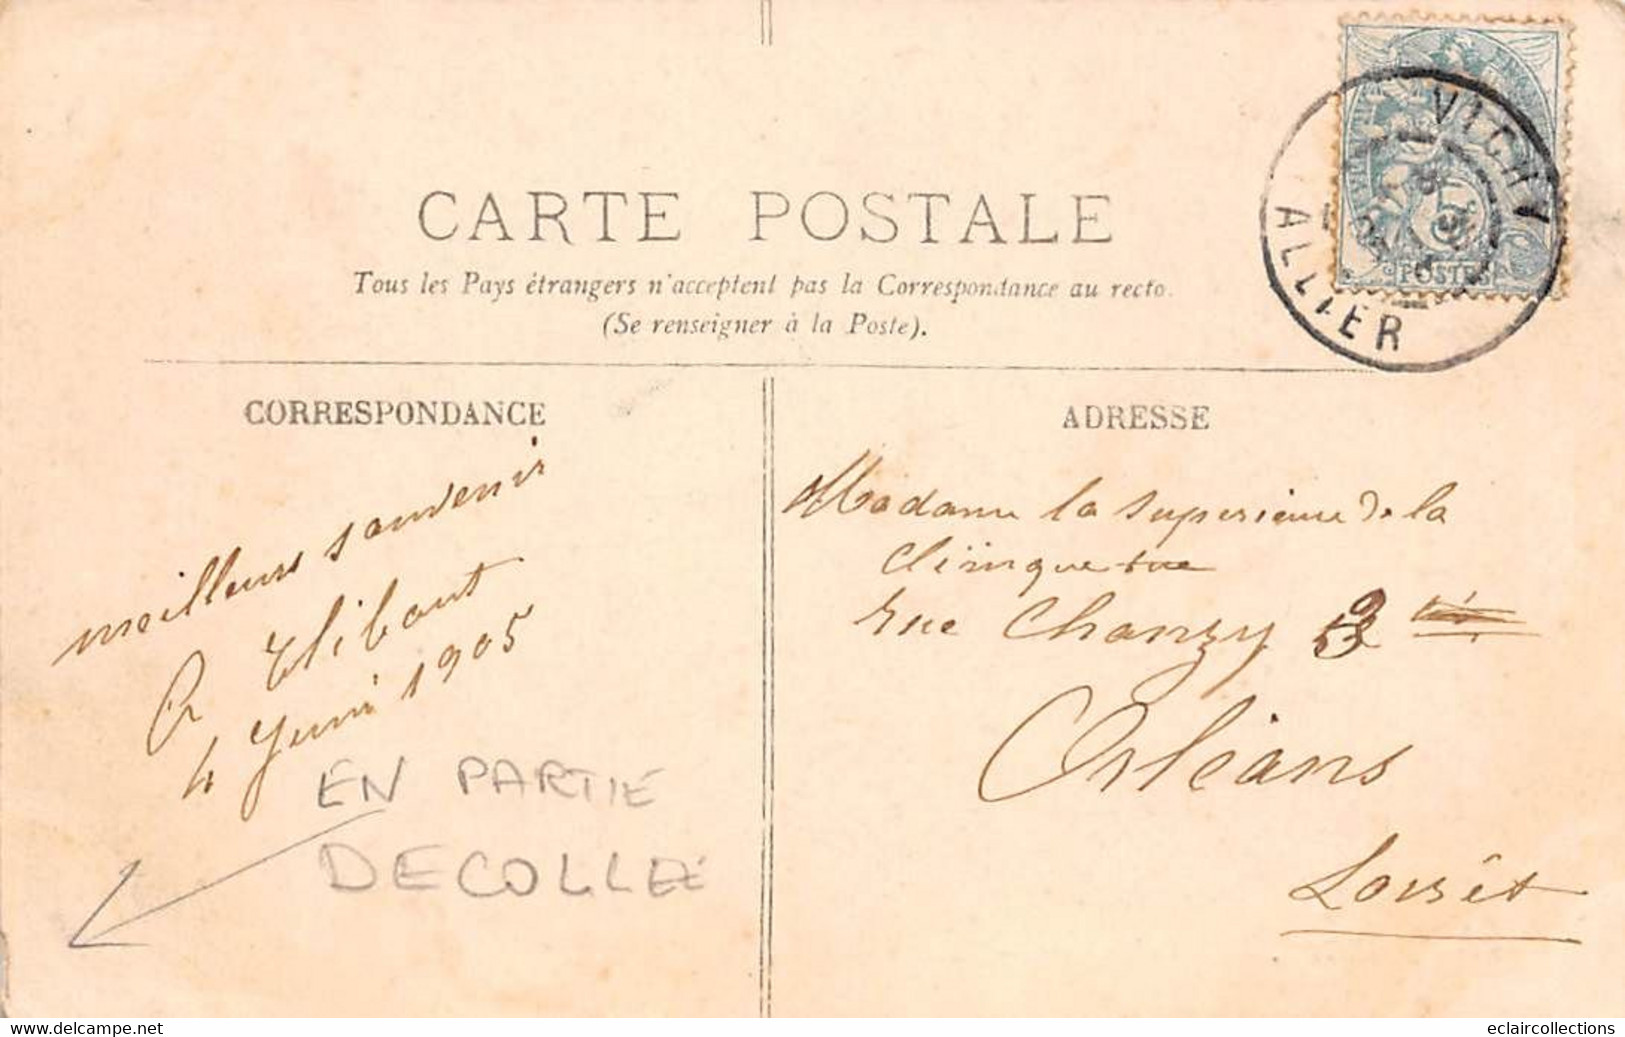 CARTE POSTALE
Tous les Pays étrangers n'acceptent pas la Correspondance au recto.
(Se renseigner à la Poste).
VICHY
ALLIER
5
POSTES
CORRESPONDANCE
meilleurs souvenir
Thibaut
4 Juin 1905
EN PARTIE
DECOLLÉ
ADRESSE
Madame la superieure de la
cliinque rue
rue Chanzy
Orléans
Loirêt
www.delcampe.net
eclaircollections